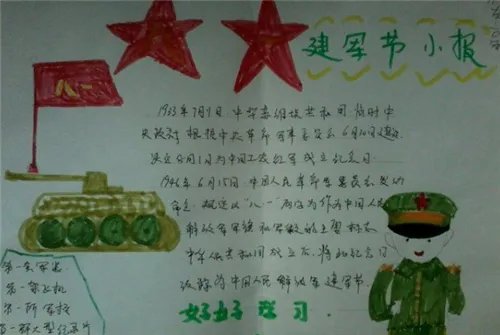 建军节小报
八一
1933年7月1日 中华苏维埃共和国 临时中
央政府 根据中央革命军事委员会 6月30日建议
决定8月1日为中国工农红军成立纪念日
1946年6月15日 中国人民革命军事委员会发布
命令 规定以"八一"两字为作为中国人民
解放军军旗和军徽的主要标志
中华人民共和国成立后 将此纪念日
改称为中国人民解放军建军节
好好学习
第一
第一架飞机
第一所军校
第一